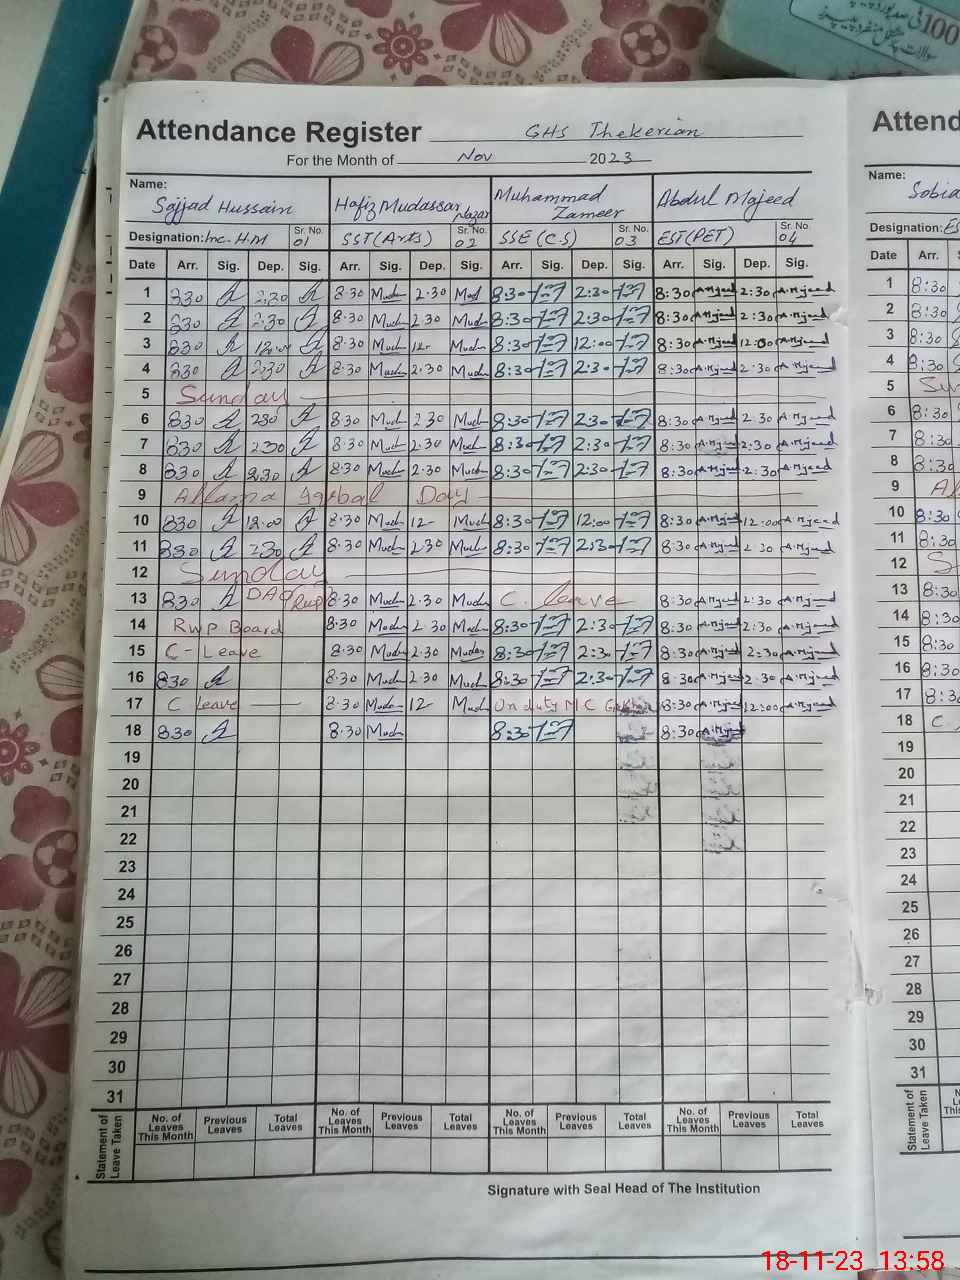 100
Attendance Register GHS Thekerian
For the Month of Nov 2023
Name: Sajjad Hussain Hafiz Mudassar Nazar Muhammad Zameer Abdul Majeed
Designation: Inc. H.M Sr. No. 01 SST (Arts) Sr. No. 02 SSE (C.S) Sr. No. 03 EST (PET) Sr. No. 04
Date Arr. Sig. Dep. Sig. Arr. Sig. Dep. Sig. Arr. Sig. Dep. Sig. Arr. Sig. Dep. Sig.
1 830 230 8.30 2.30 8:30 2:30 8:30 A.Mjeed 2:30 A.Mjeed
2 830 230 8.30 2.30 8:30 2:30 8:30 A.Mjeed 2:30 A.Mjeed
3 830 12.00 8.30 12- 8:30 12:00 8:30 A.Mjeed 12:00 A.Mjeed
4 830 230 8.30 2.30 8:30 2:30 8:30 A.Mjeed 2:30 A.Mjeed
5 Sunday
6 830 230 8.30 2.30 8:30 2:30 8:30 A.Mjeed 2:30 A.Mjeed
7 830 230 8.30 2.30 8:30 2:30 8:30 A.Mjeed 2:30 A.Mjeed
8 830 230 8.30 2.30 8:30 2:30 8:30 A.Mjeed 2:30 A.Mjeed
9 Allama Iqbal Day
10 830 12.00 8.30 12- 8:30 12:00 8:30 A.Mjeed 12:00 A.Mjeed
11 830 230 8.30 2.30 8:30 2:30 8:30 A.Mjeed 2:30 A.Mjeed
12 Sunday
13 830 Rwp 8.30 2.30 C. leave 8:30 A.Mjeed 2:30 A.Mjeed
14 Rwp Board 8.30 2.30 8:30 2:30 8:30 A.Mjeed 2:30 A.Mjeed
15 C- Leave 8.30 2.30 8:30 2:30 8:30 A.Mjeed 2:30 A.Mjeed
16 830 8.30 2.30 8:30 2:30 8:30 A.Mjeed 2:30 A.Mjeed
17 C leave 8.30 12 On duty M C 8:30 A.Mjeed 12:00 A.Mjeed
18 830 8.30 8:30 8:30 A.Mjeed
19
20
21
22
23
24
25
26
27
28
29
30
31
Statement of Leave Taken
No. of Leaves This Month Previous Leaves Total Leaves No. of Leaves This Month Previous Leaves Total Leaves No. of Leaves This Month Previous Leaves Total Leaves No. of Leaves This Month Previous Leaves Total Leaves
Signature with Seal Head of The Institution
Attend
Name:
Sobia
Designation: ES
Date Arr.
1 8:30
2 8:30
3 8:30
4 8:30
5
6 8:30
7 8:30
8 8:30
9
10 8:30
11 8:30
12
13 8:30
14 8:30
15 8:30
16 8:30
17 8:30
18 C.
19
20
21
22
23
24
25
26
27
28
29
30
31
Statement of Leave Taken
18-11-23 13:58